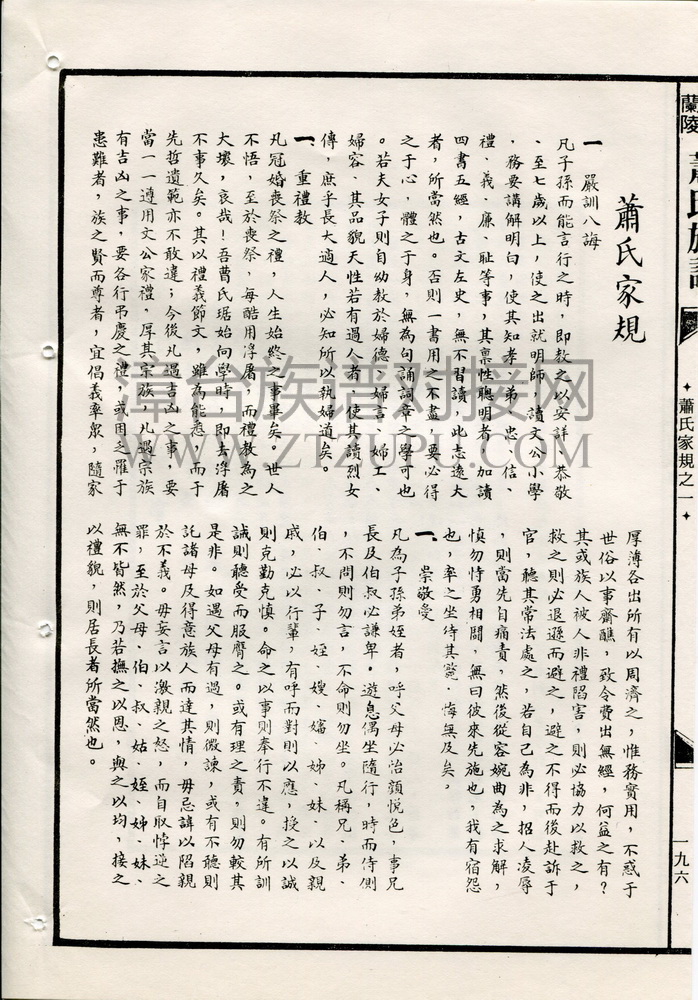 蘭陵蕭氏族譜
蕭氏家規之一
一九六
蕭氏家規
一 嚴訓八誨
凡子孫而能言行之時，即教之以安詳、恭敬
、至七歲以上，使之出就明師、讀文公小學
、務要講解明白，使其知孝、弟、忠、信、
禮、義、廉、耻等事，其禀性聰明者、加讀
四書五經，古文左史，無不習讀，此志遠大
者，所當然也。否則一書用之不盡，要必得
之于心，體之于身，無為句誦詞章之學可也
。若夫女子則自幼教於婦德、婦言、婦工、
婦容、其品貌天性若有過人者、使其讀烈女
傳，庶乎長大適人，必知所以執婦道矣。
一、重禮教
凡冠婚喪祭之禮，人生始終之事畢矣。世人
不悟，至於喪祭，每酷用浮屠，而禮教為之
大壞，哀哉！吾曹氏琚始向學時，即去浮屠
不事久矣。其以禮義節文，雖為能悉，而于
先哲遺範亦不敢違；今後凡遇吉凶之事，要
當一一遵用文公家禮，厚其宗族，凡遇宗族
有吉凶之事，要各行弔慶之禮，或困乏罹于
患難者，族之賢而尊者，宜倡義率眾，隨家
厚薄各出所有以周濟之，惟務實用，不惑于
世俗以事齋醮，致令費出無經，何益之有？
其或族人被人非禮陷害，則必協力以救之，
救之則必退遜而避之，避之不得而後赴訴于
官，聽其常法處之，若自己為非，招人凌辱
，則當先自痛責，然後從容婉曲為之求解，
慎勿恃勇相鬪，無曰彼來先施也，我有宿怨
也，率之坐待其斃，悔無及矣。
一、崇敬受
凡為子孫弟姪者，呼父母必怡顏悅色，事兄
長及伯叔必謙卑。遊息偶坐隨行，時而侍側
，不問則勿言，不命則勿坐。凡稱兄、弟、
伯、叔、子、姪、嫂、嬸、姊、妹、以及親
戚，必以行輩，有呼而對則以應，授之以誠
則克勤克慎。命之以事則奉行不違。有所訓
誡則聽受而服膺之。或有理之責，則勿較其
是非。如遇父母有過，則微諫，或有不聽則
託諸母及得意族人而達其情，毋忌諱以陷親
於不義。毋妄言以激親之怒，而自取悖逆之
罪，至於父母、伯、叔、姑、姪、姊、妹、
無不皆然，乃若撫之以恩，與之以均，接之
以禮貌，則居長者所當然也。
WWW.ZTZUPU.COM